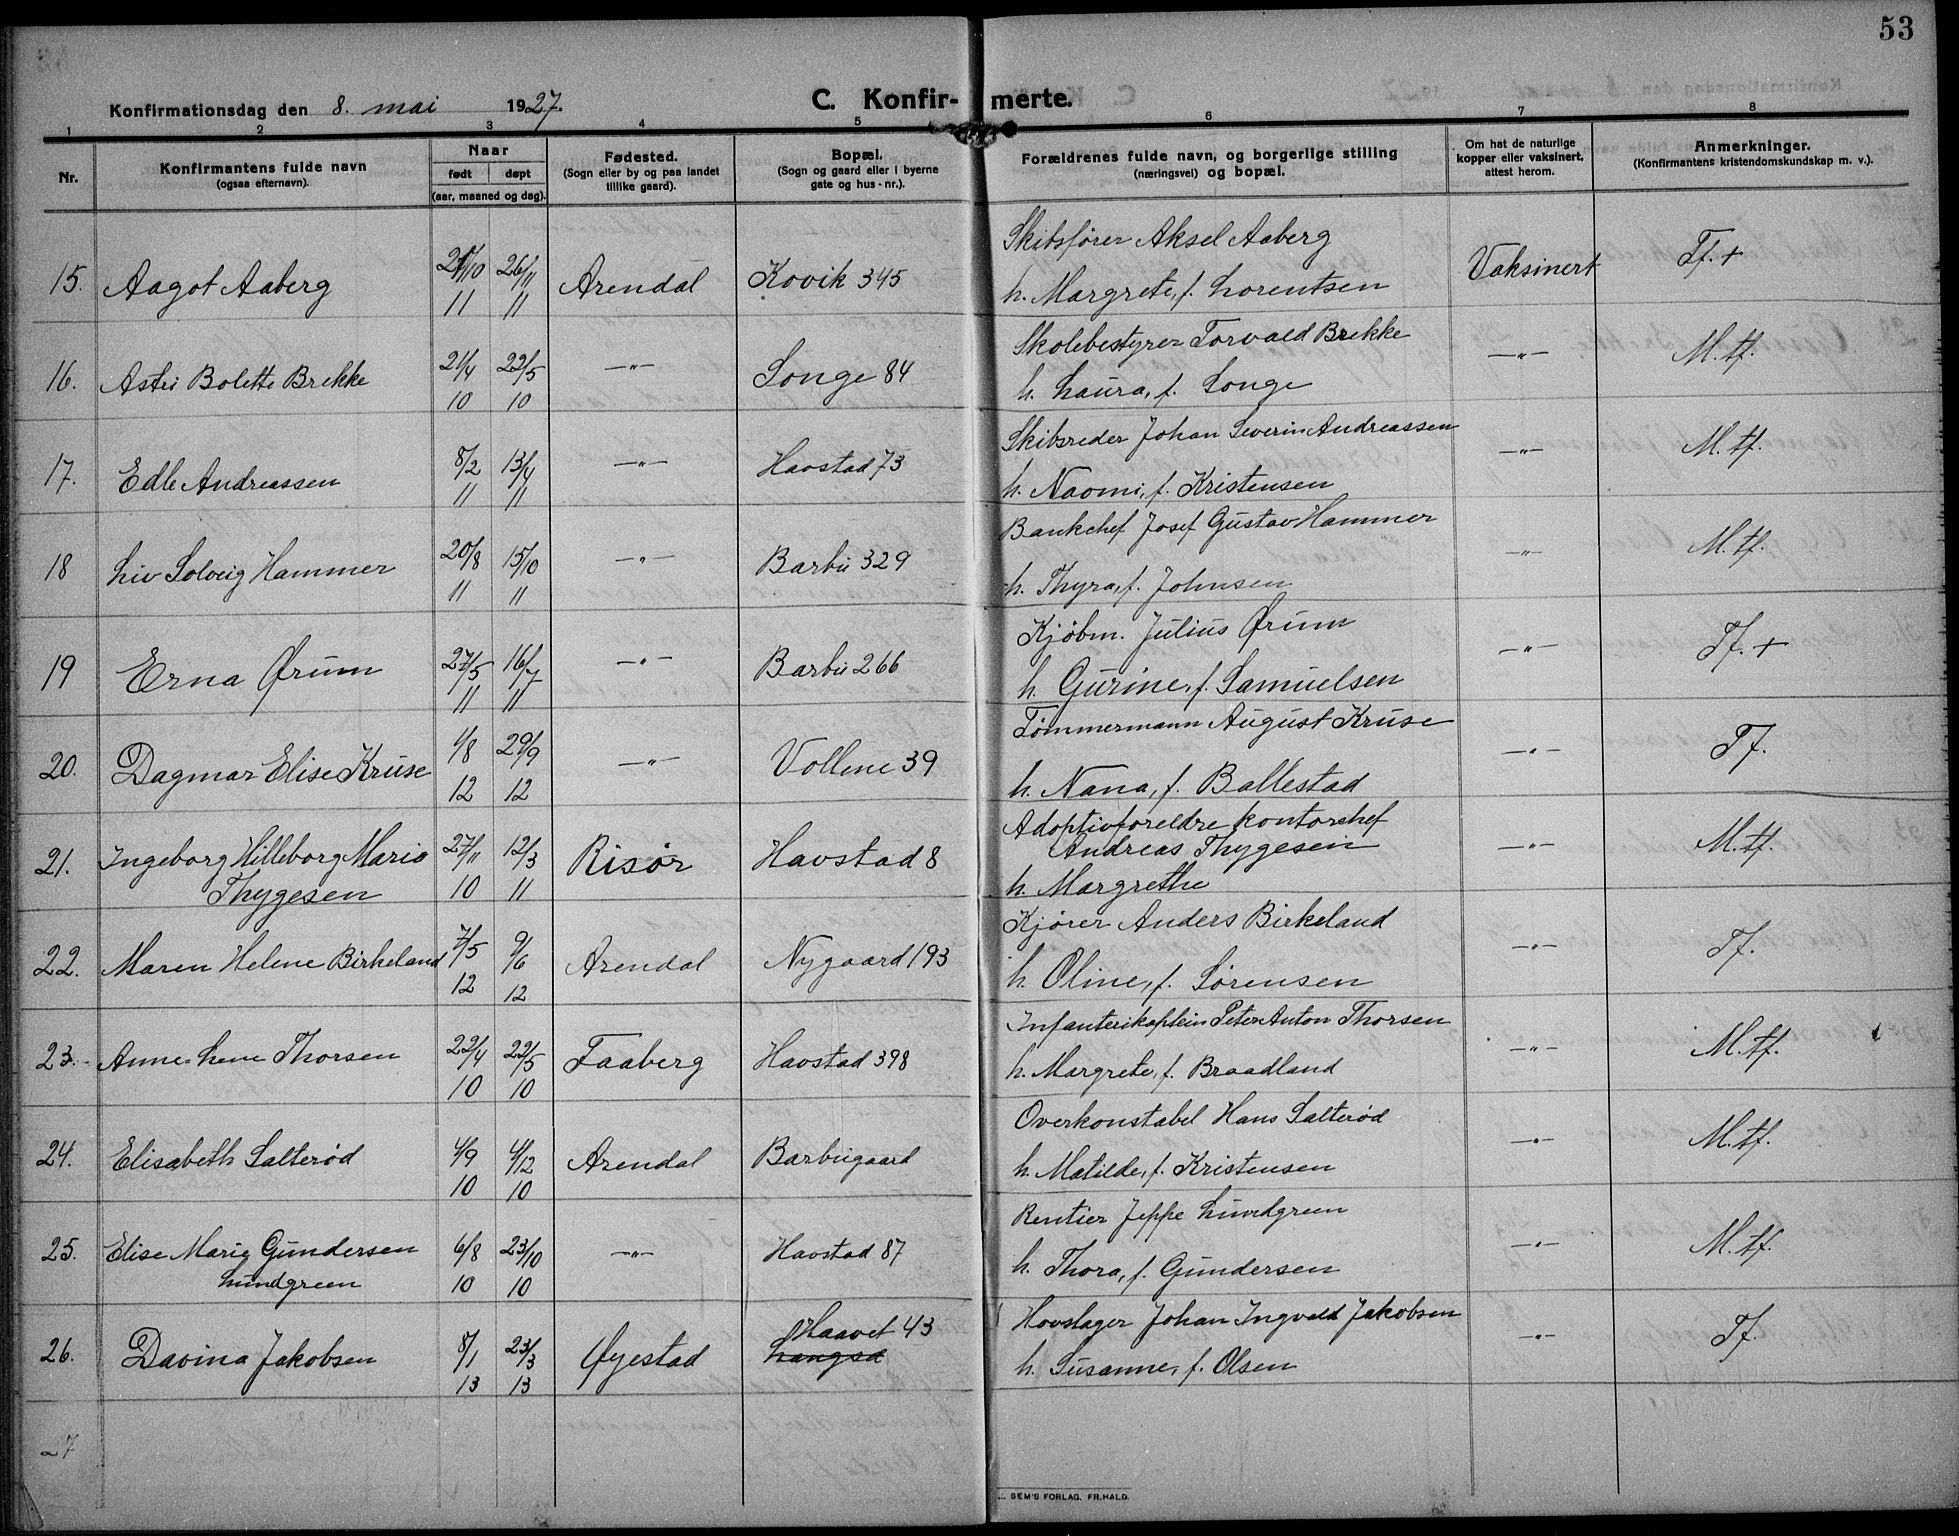 53
Konfirmationsdag den 8. mai 1927.
C. Konfir- merte.
1 2 3 4 5 6 7 8
Nr.
Konfirmantens fulde navn
(ogsaa efternavn).
Naar
født døpt
(aar, maaned og dag).
Fødested.
(Sogn eller by og paa landet
tillike gaard).
Bopæl.
(Sogn og gaard eller i byerne
gate og hus-nr.).
Forældrenes fulde navn, og borgerlige stilling
(næringsvei) og bopæl.
Om hat de naturlige
kopper eller vaksinert,
attest herom.
Anmerkninger.
(Konfirmantens kristendomskundskap m. v.).
Skibsfører Aksel Aaberg
15. Aagot Aaberg 26/11 Arendal Kovik 345 Vaksinert Tf. +
11 11 h. Margrete, f. Lorentsen
Skolebestyrer Torvald Brekke
16. Astri Bolette Brekke 21/4 22/5 —"— Songe 84 —"— M. tf.
10 10 h. Laura, f. Songe
Skibsreder Johan Severin Andreassen
17. Edle Andreassen 8/2 13/4 —"— Havstad 73 —"— M. tf.
11 11 h. Naomi, f. Kristensen
Bankchef Josef Gustav Hammer
18 Liv Solveig Hammer 20/8 15/10 —"— Barbu 329 —"— M. tf.
11 11 h. Thyra, f. Johnsen
Kjøbm. Julius Ørum
19 Erna Ørum 27/5 16/7 —"— Barbu 266 —"— Tf. +
11 11 h. Gurine, f. Samuelsen
Tømmermann August Kruse
20. Dagmar Elise Kruse 1/8 29/9 —"— Vollene 39 —"— Tf.
12 12 h. Nana, f. Ballestad
Adoptivforeldre kontorchef
21. Ingeborg Hilleborg Marie 27/11 12/3 Risør Havstad 8 Andreas Thygesen —"— M. tf.
Thygesen 10 11 h. Margrethe
Kjører Anders Birkeland
22. Maren Helene Birkeland 7/5 9/6 Arendal Nygaard 193 —"— Tf.
12 12 h. Oline, f. Sørensen
Infanterikaptein Peter Anton Thorsen
23. Anne Lene Thorsen 22/4 22/5 Faaberg Havstad 398 —"— M. tf.
10 10 h. Margrete, f. Braadland
Overkonstabel Hans Salterød
24. Elisabeth Salterød 4/9 4/12 Arendal Barbugaard —"— M. tf.
10 10 h. Matilde, f. Kristensen
Rentier Jeppe Lundgreen
25. Elise Marie Gundersen 6/8 23/10 —"— Havstad 87 —"— M. tf.
Lundgreen 10 10 h. Thora, f. Gundersen
Haavet 43 Hovslager Johan Ingvald Jakobsen
26. Davina Jakobsen 8/1 23/3 Øyestad Langsæ —"— Tf.
13 13 h. Susanne, f. Olsen
27
SEM'S FORLAG, FR.HALD.